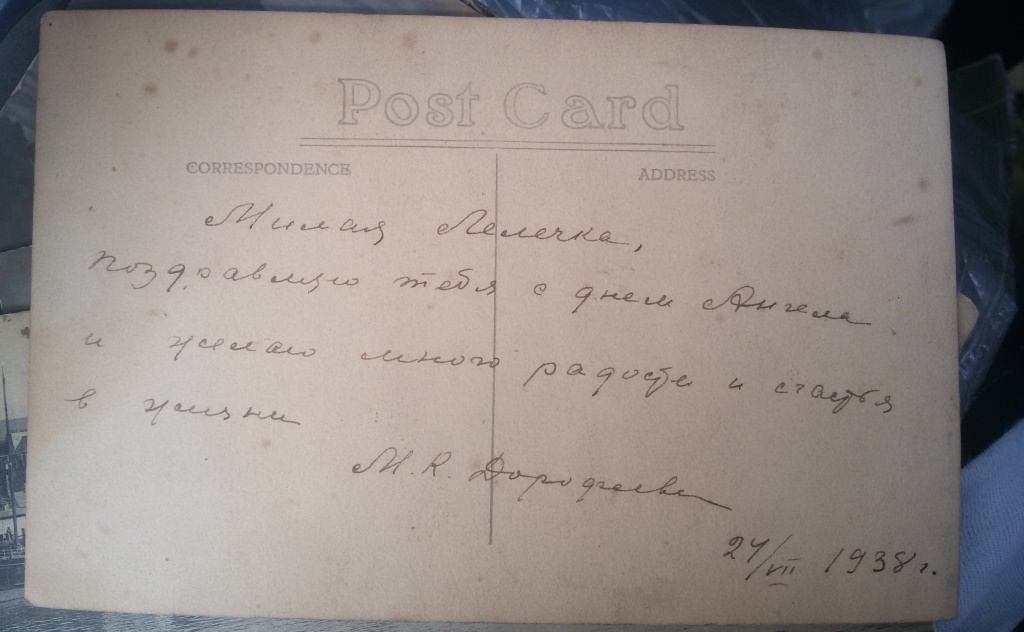 Post Card
CORRESPONDENCE ADDRESS
Милая Лелечка,
поздравляю тебя с днем Ангела
и желаю много радости и счастья
в жизни
М. К. Дорофеева
24/VII 1938 г.